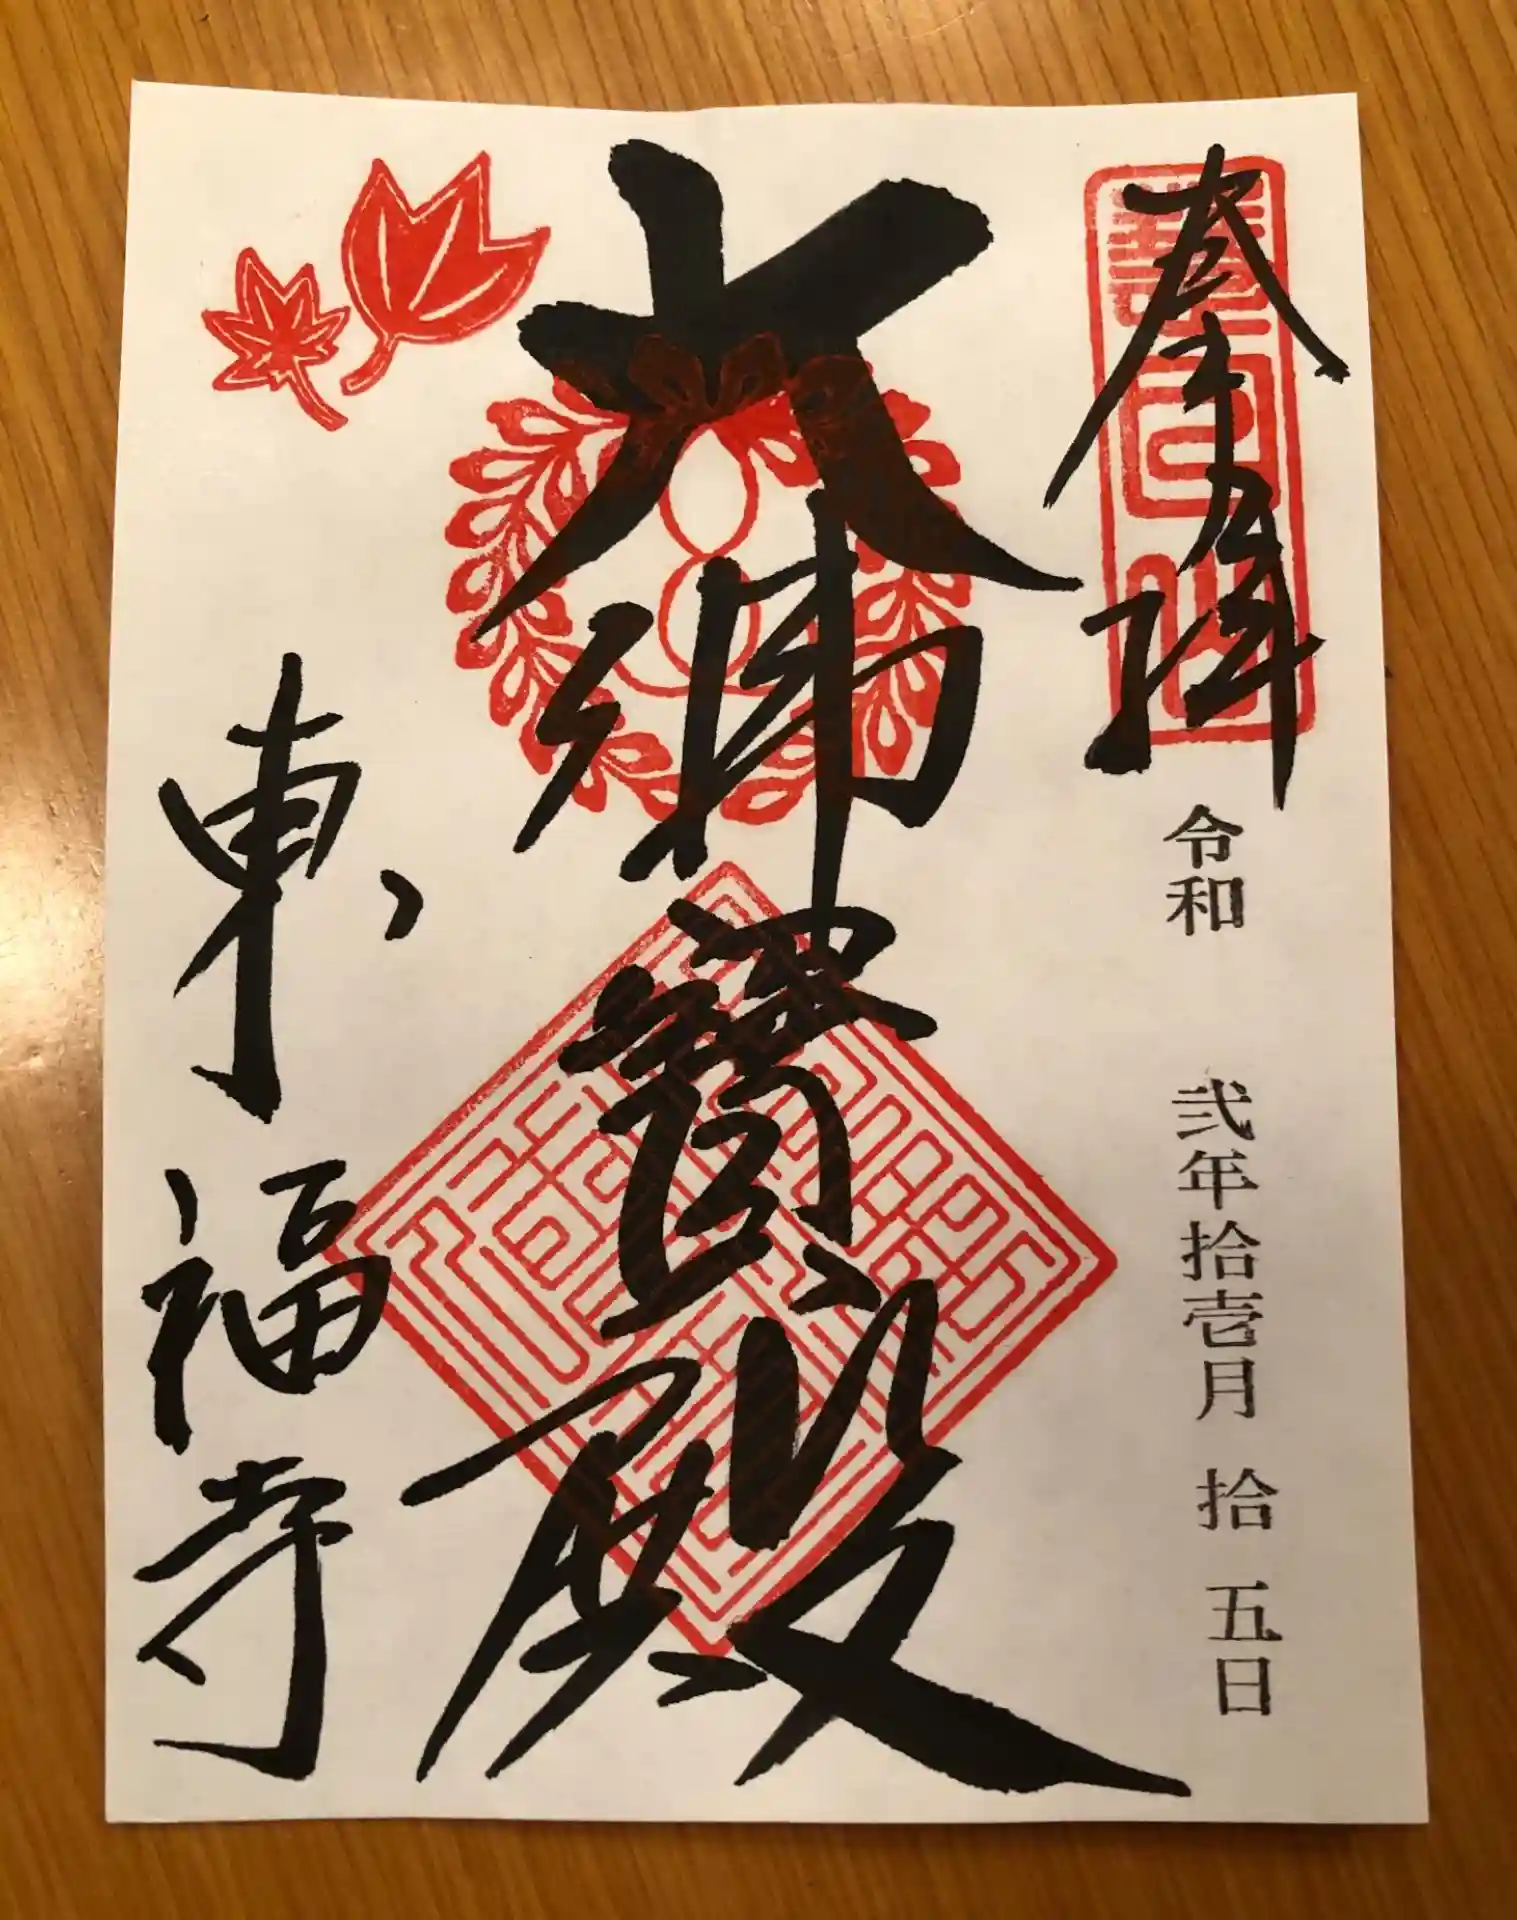 奉拝
令和 弐年拾壱月 拾五日
大佛寳殿
東福寺